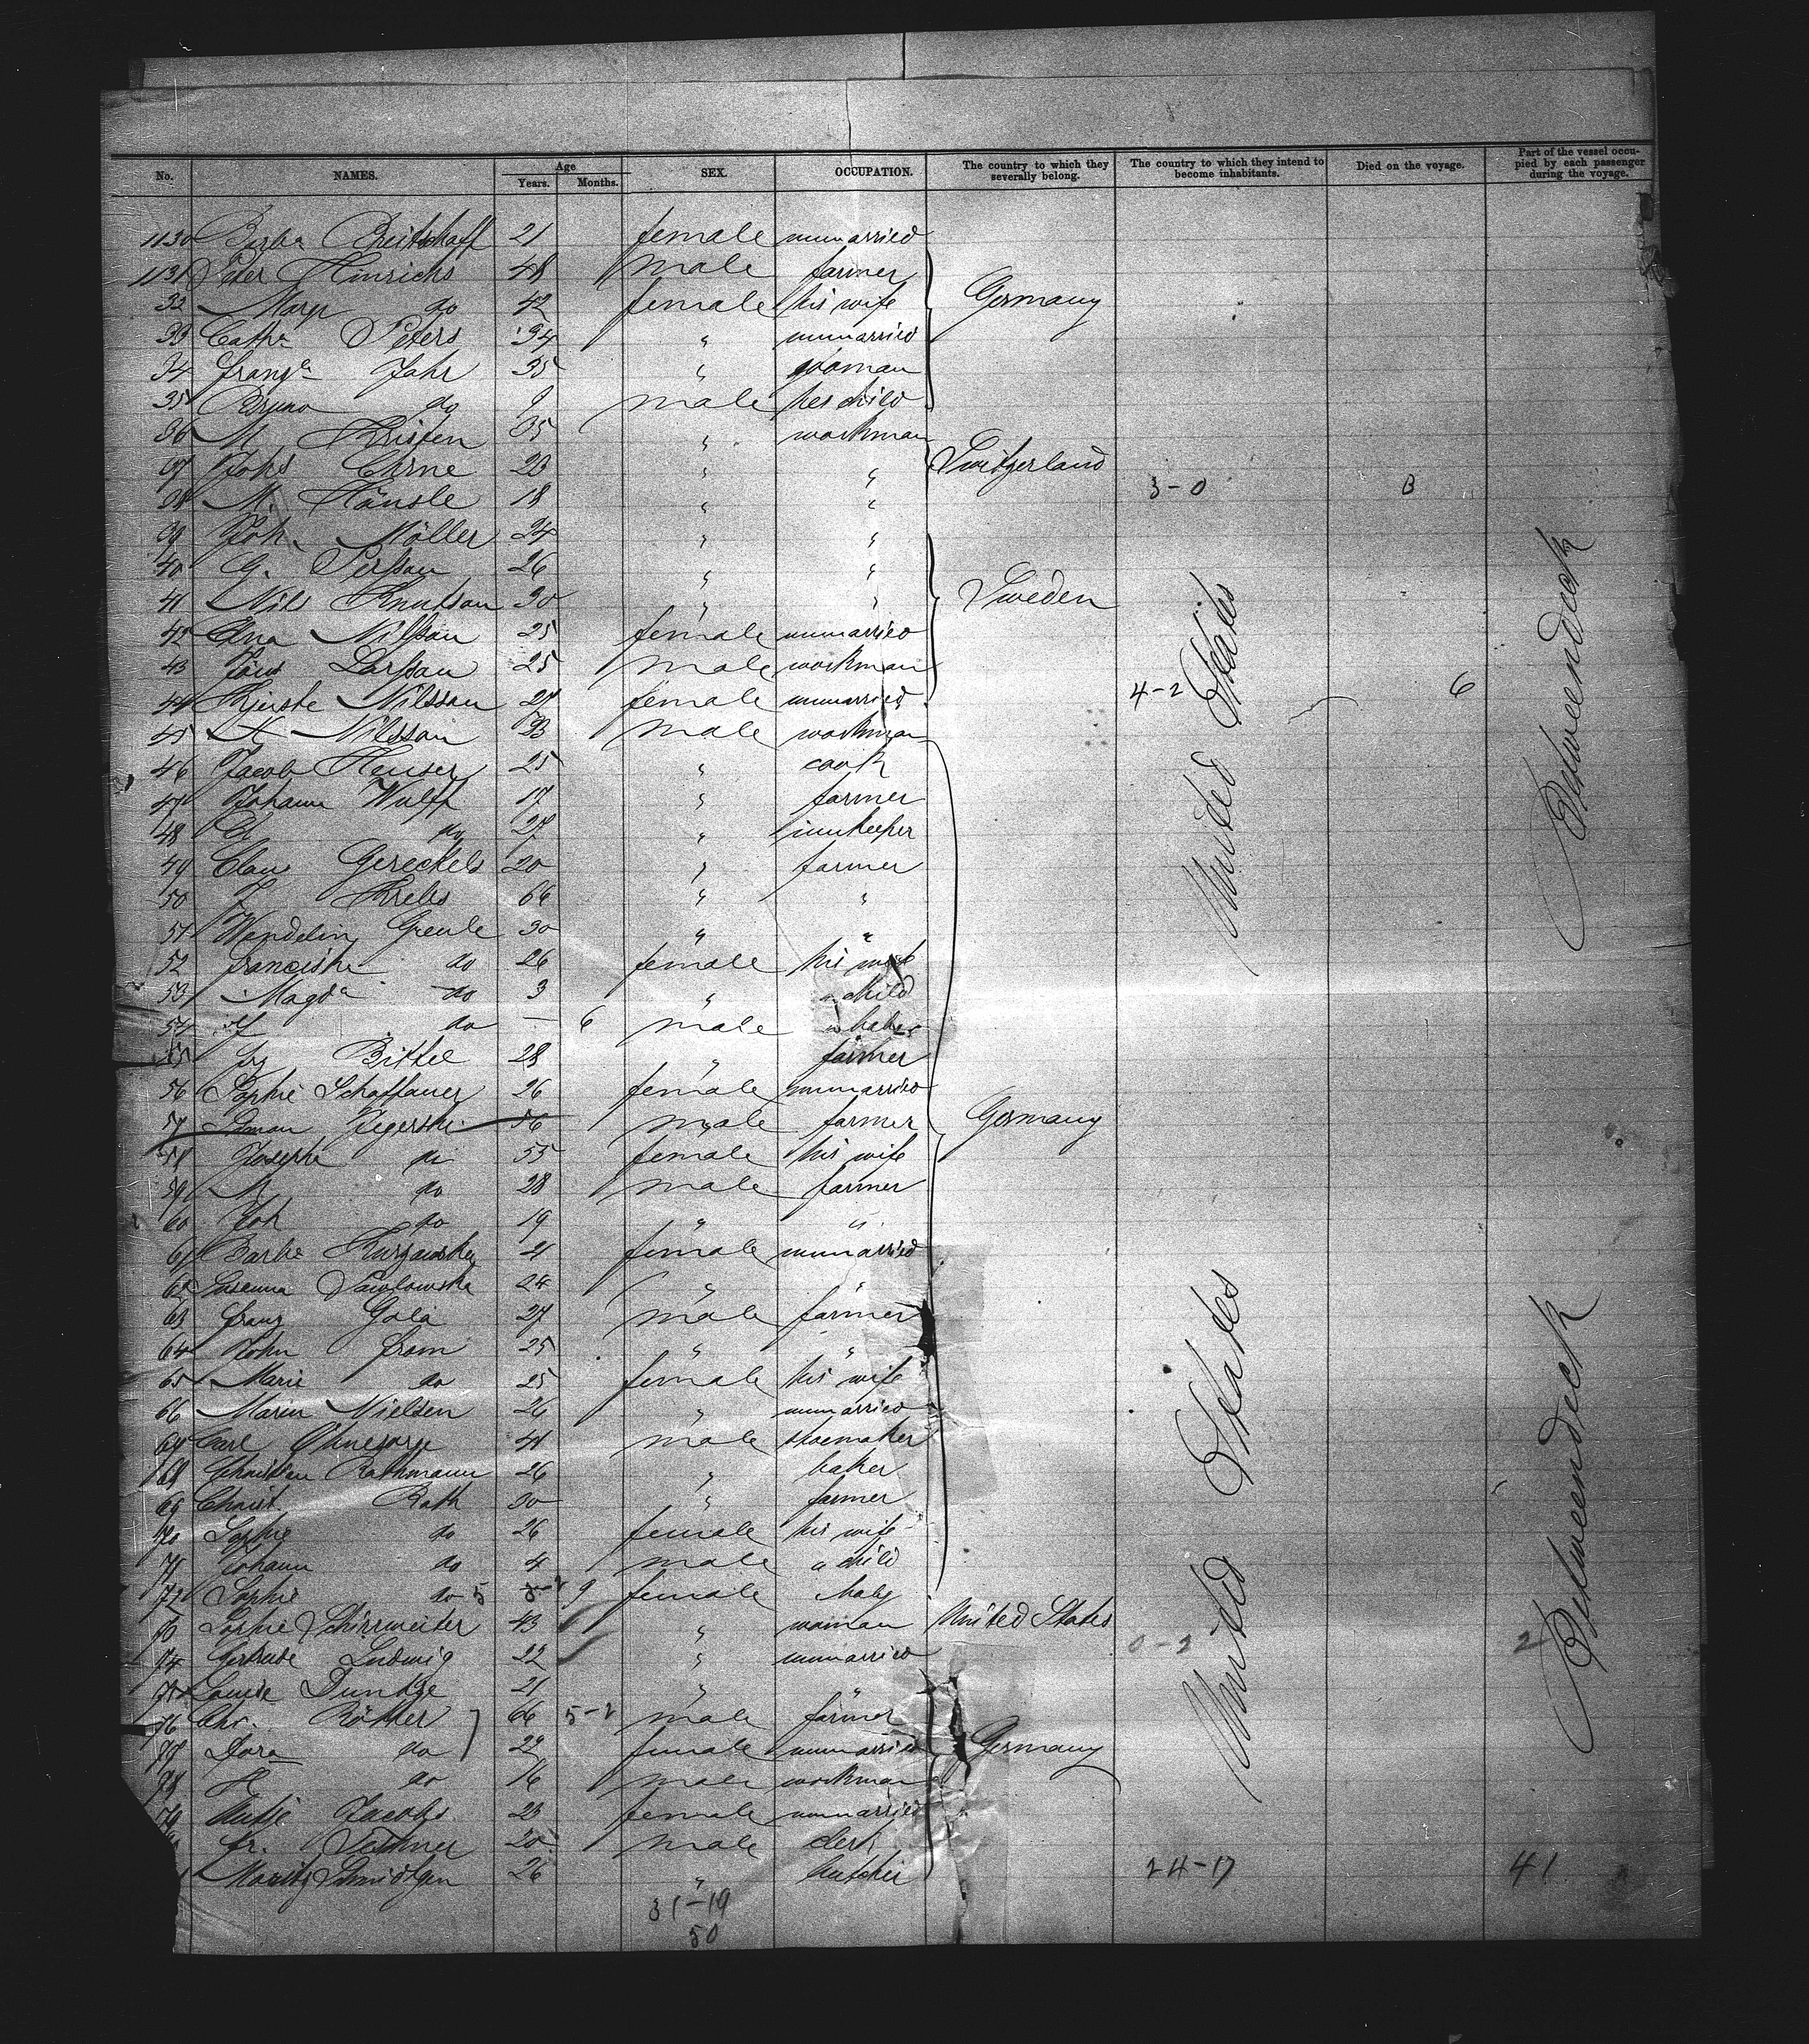 No. NAMES. Age Years. Months. SEX. OCCUPATION. The country to which they severally belong. The country to which they intend to become inhabitants. Died on the voyage. Part of the vessel occupied by each passenger during the voyage.
1130 Barba Breitschaff 21 female unmarried
1131 Peter Hinrichs 48 male farmer
32 Marg do 42 female his wife Germany
33 Catha Peters 34 " unmarried
34 Franza Jahr 35 " woman
35 Bruno do 9 male her child
36 M. Kristen 35 " workman
37 Johs 23 " " Switzerland
38 M. Hänsle 18 " " 3-0 3
39 Joh. Möller 24 " "
40 G. Persson 26 " "
41 Nils Knutson 30 " " Sweden
42 Elna Nilsson 25 female unmarried
43 Jöns Larsson 25 male workman
44 Kjerste Nilsson 27 female unmarried 4-2 United States 6 Betweendeck
45 Nilsson 33 male workman
46 Jacob Heuser 25 " cook
47 Johann Wulff 17 " farmer
48 do 27 " innkeeper
49 Claus Gereckels 20 " farmer
50 J Krebs 66 " "
51 Wendelin Greule 30 " "
52 Franciska do 26 female his wife
53 Magda do 3 " " child
54 do — 6 male " baby
55 Bittel 28 " farmer
56 Sophie Schaffauer 26 female unmarried
57 Jegerski 56 male farmer Germany
58 Josepha do 55 female his wife
59 M do 28 male farmer
60 Joh do 19 " "
61 Barba 21 female unmarried
62 24 " "
63 Franz Gala 27 male farmer
64 John From 25 " "
65 Marie do 25 female his wife
66 Maren Nielsen 26 " unmarried
67 Carl Ohnesorge 41 male shoemaker United States Betweendeck
68 Christian Rathmann 26 " baker
69 Christ. Rath 30 " farmer
70 Sophie do 26 female his wife
71 Johann do 4 male " child
72 Sophie do 5 9 female baby
73 Sophie Schirrmeister 43 " woman United States
74 Gertrude Ludwig 22 " unmarried 0-2 2
75 Louise Duntze 21 " "
76 Chr. Röther 66 5-2 male farmer
77 Dora do 22 female unmarried Germany
78 H do 16 male workman
79 Antje Jacobs 23 female unmarried
Fr. 20 male clerk
Moritz 26 " butcher 24-17 41
31-19
50